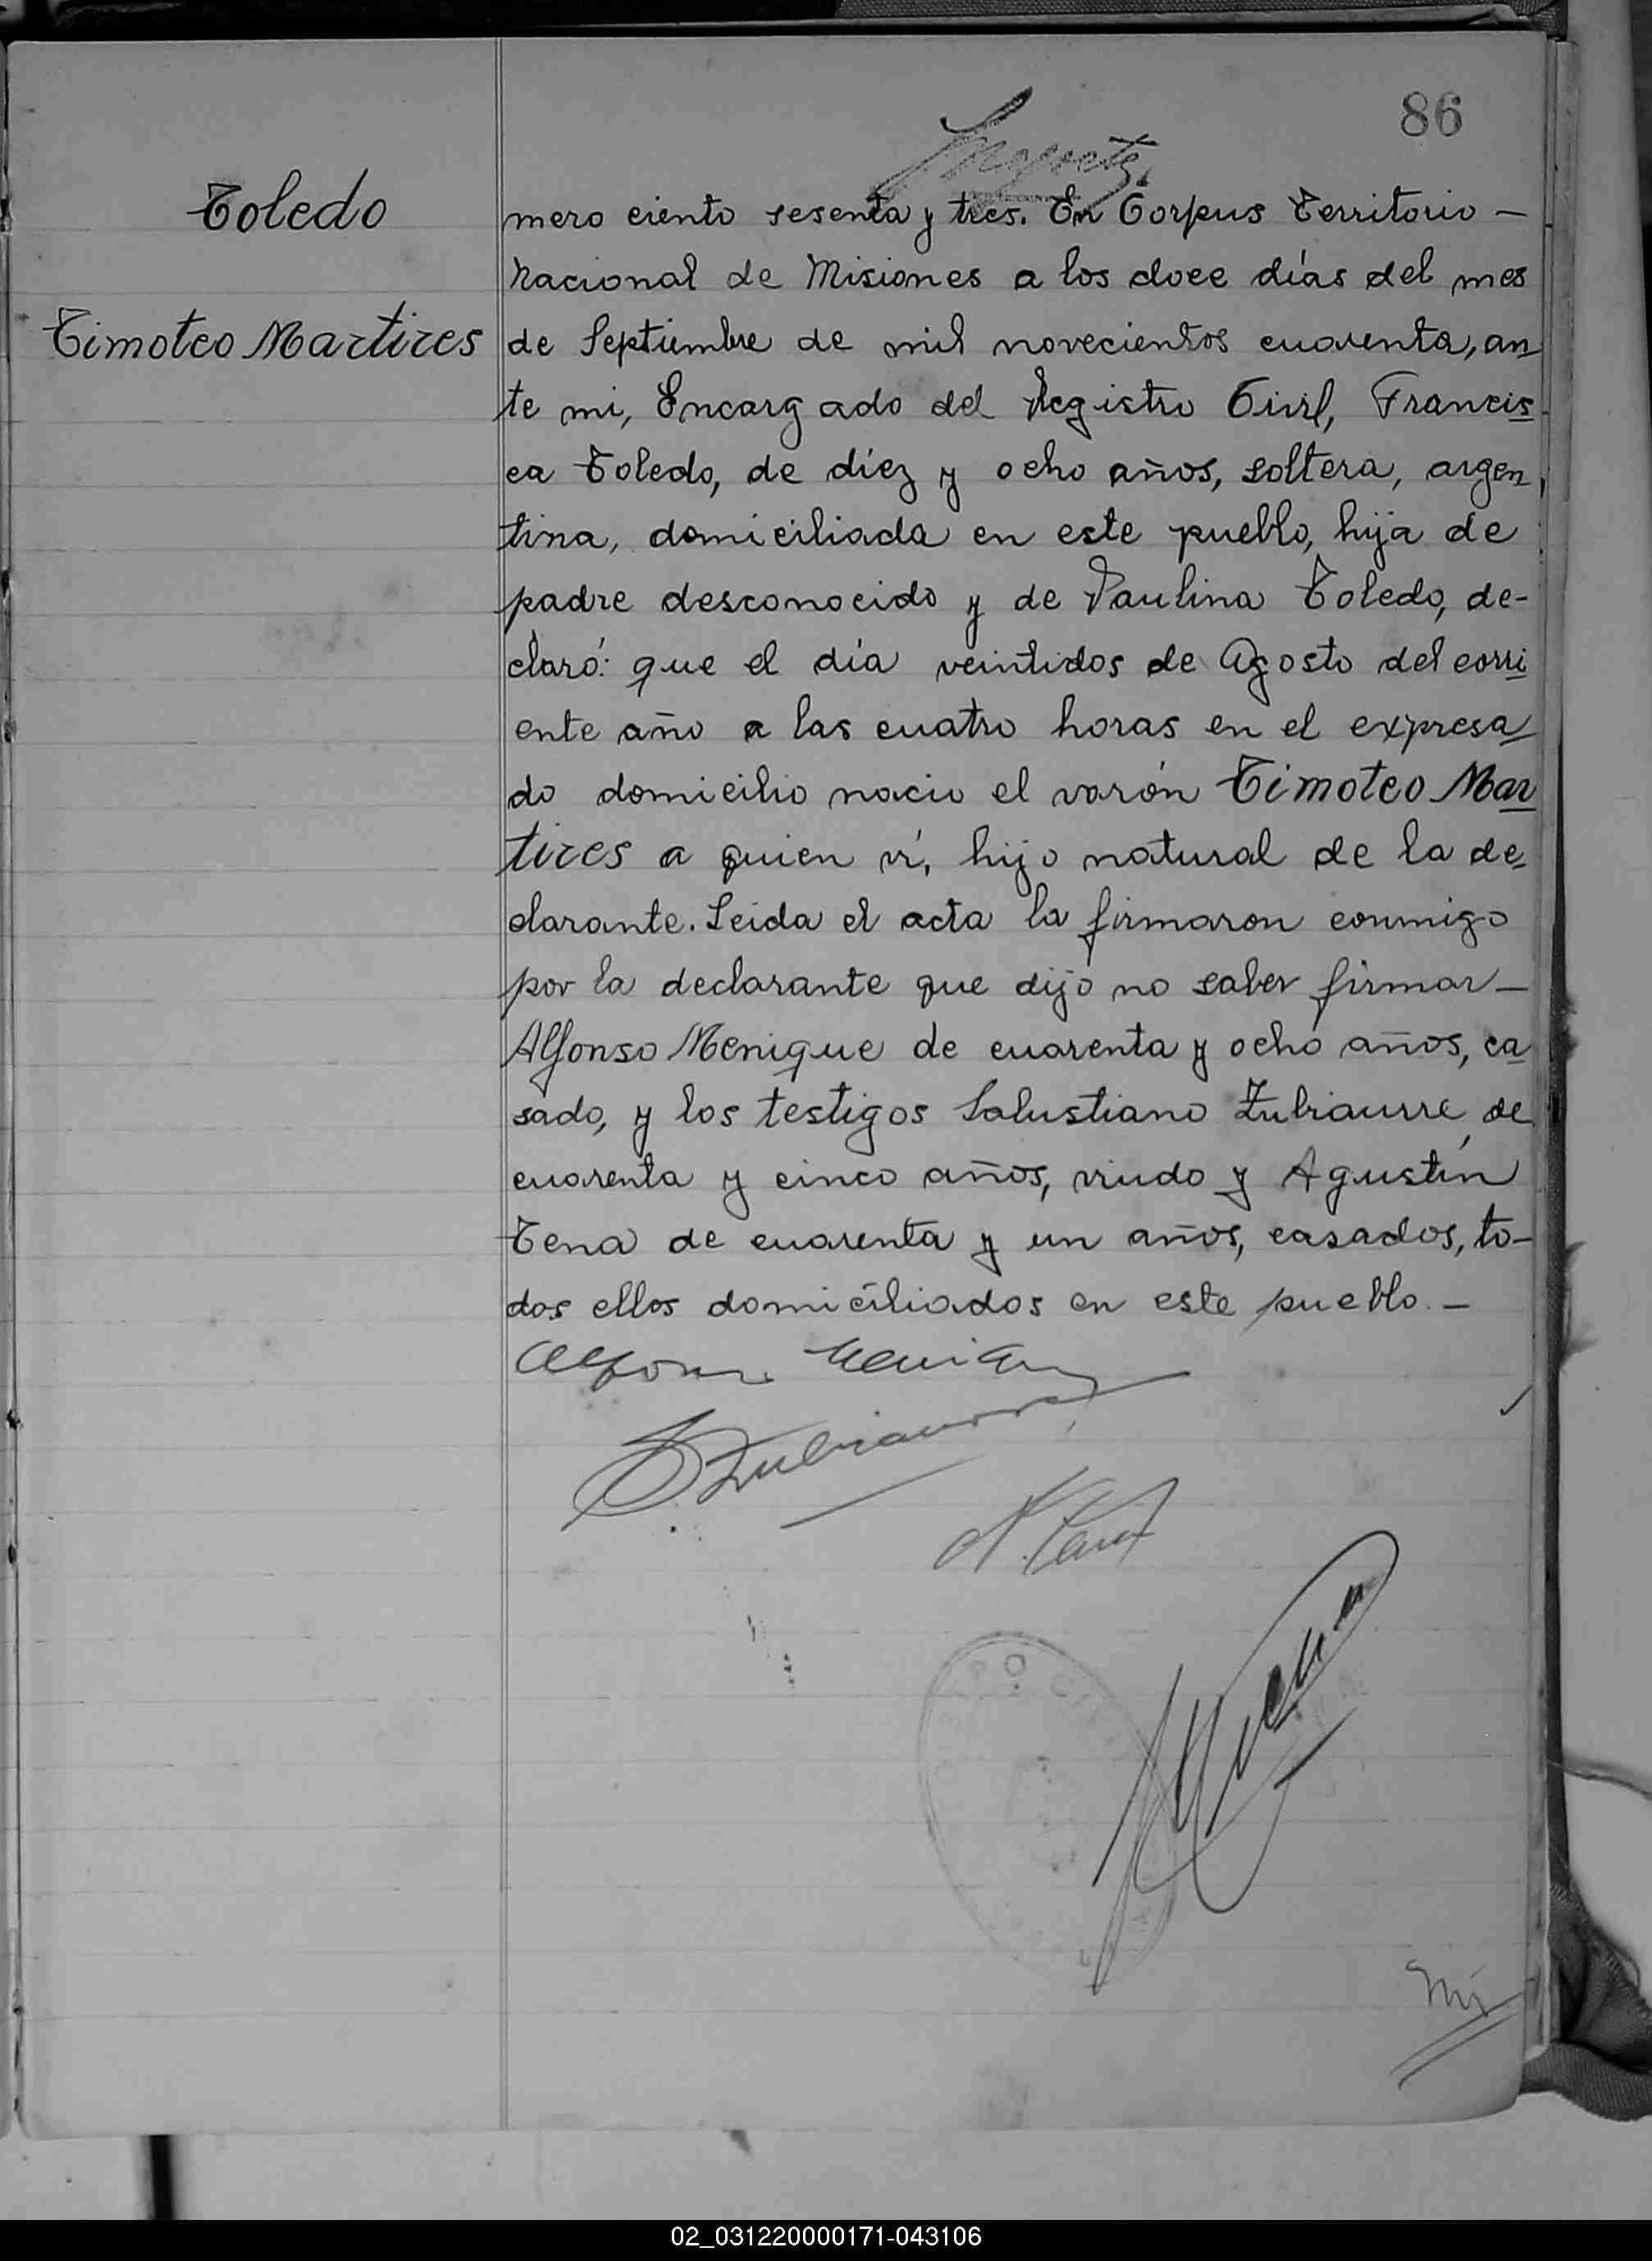 86
Toledo
Timoteo Martires
mero ciento sesenta y tres. En Corpus Territorio —
Nacional de Misiones a los doce días del mes
de Septiembre de mil novecientos cuarenta, an
te mi, Encargado del Registro Civil, Francis
ca Toledo, de diez y ocho años, soltera, argen
tina, domiciliada en este pueblo, hija de
padre desconocido y de Paulina Toledo, de-
claró: que el día veintidos de Agosto del corri
ente año a las cuatro horas en el expresa
do domicilio nacio el varón Timoteo Mar
tires a quien ví, hijo natural de la de
clarante. Leida el acta la firmaron conmigo
por la declarante que dijo no saber firmar —
Alfonso Menique de cuarenta y ocho años, ca
sado, y los testigos Salustiano Zubiaurre, de
cuarenta y cinco años, viudo y Agustín
Tena de cuarenta y un años, casados, to-
dos ellos domiciliados en este pueblo. —
S. Zubiaurre
02_031220000171-043106